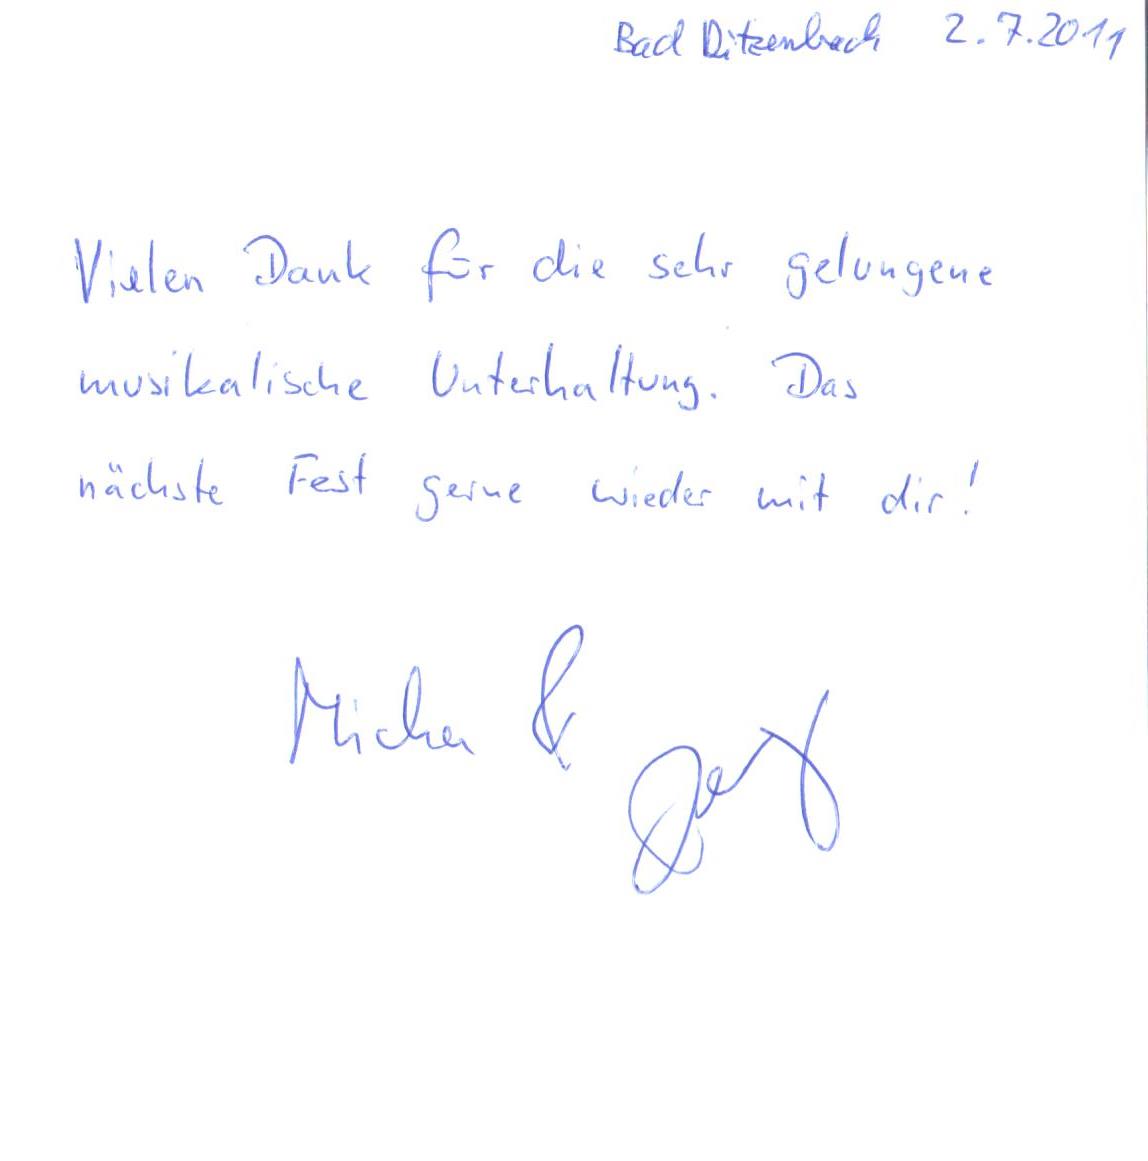 Bad Ditzenbach 2.7.2011
Vielen Dank für die sehr gelungene
musikalische Unterhaltung. Das
nächste Fest gerne wieder mit dir!
Micha &